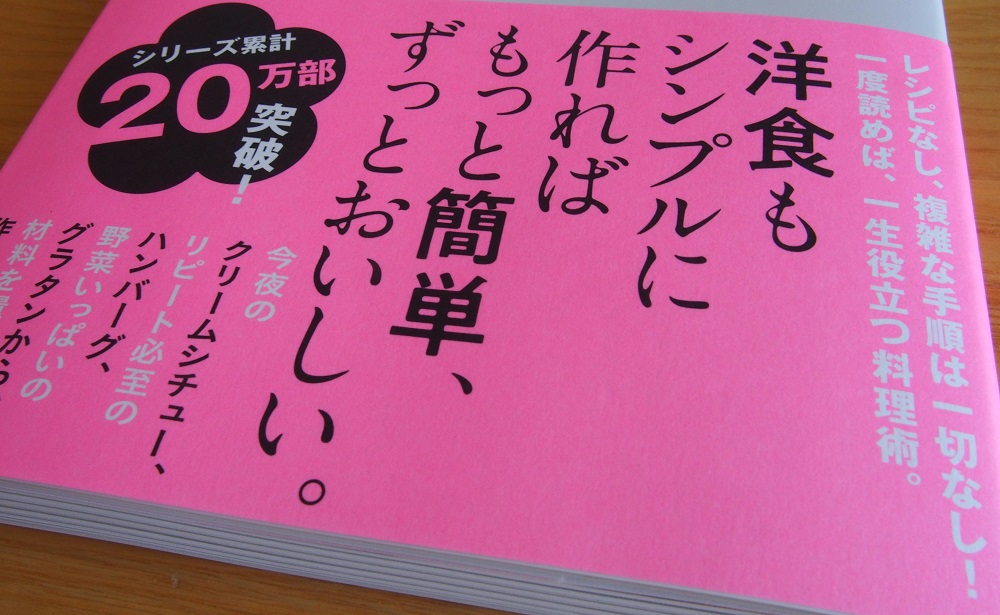 レシピなし、複雑な手順は一切なし！
一度読めば、一生役立つ料理術。
洋食も
シンプルに
作れば
もっと簡単、
ずっとおいしい。
シリーズ累計
20万部
突破！
今夜の
クリームシチュー、
リピート必至の
ハンバーグ、
野菜いっぱいの
グラタンから
材料を
作